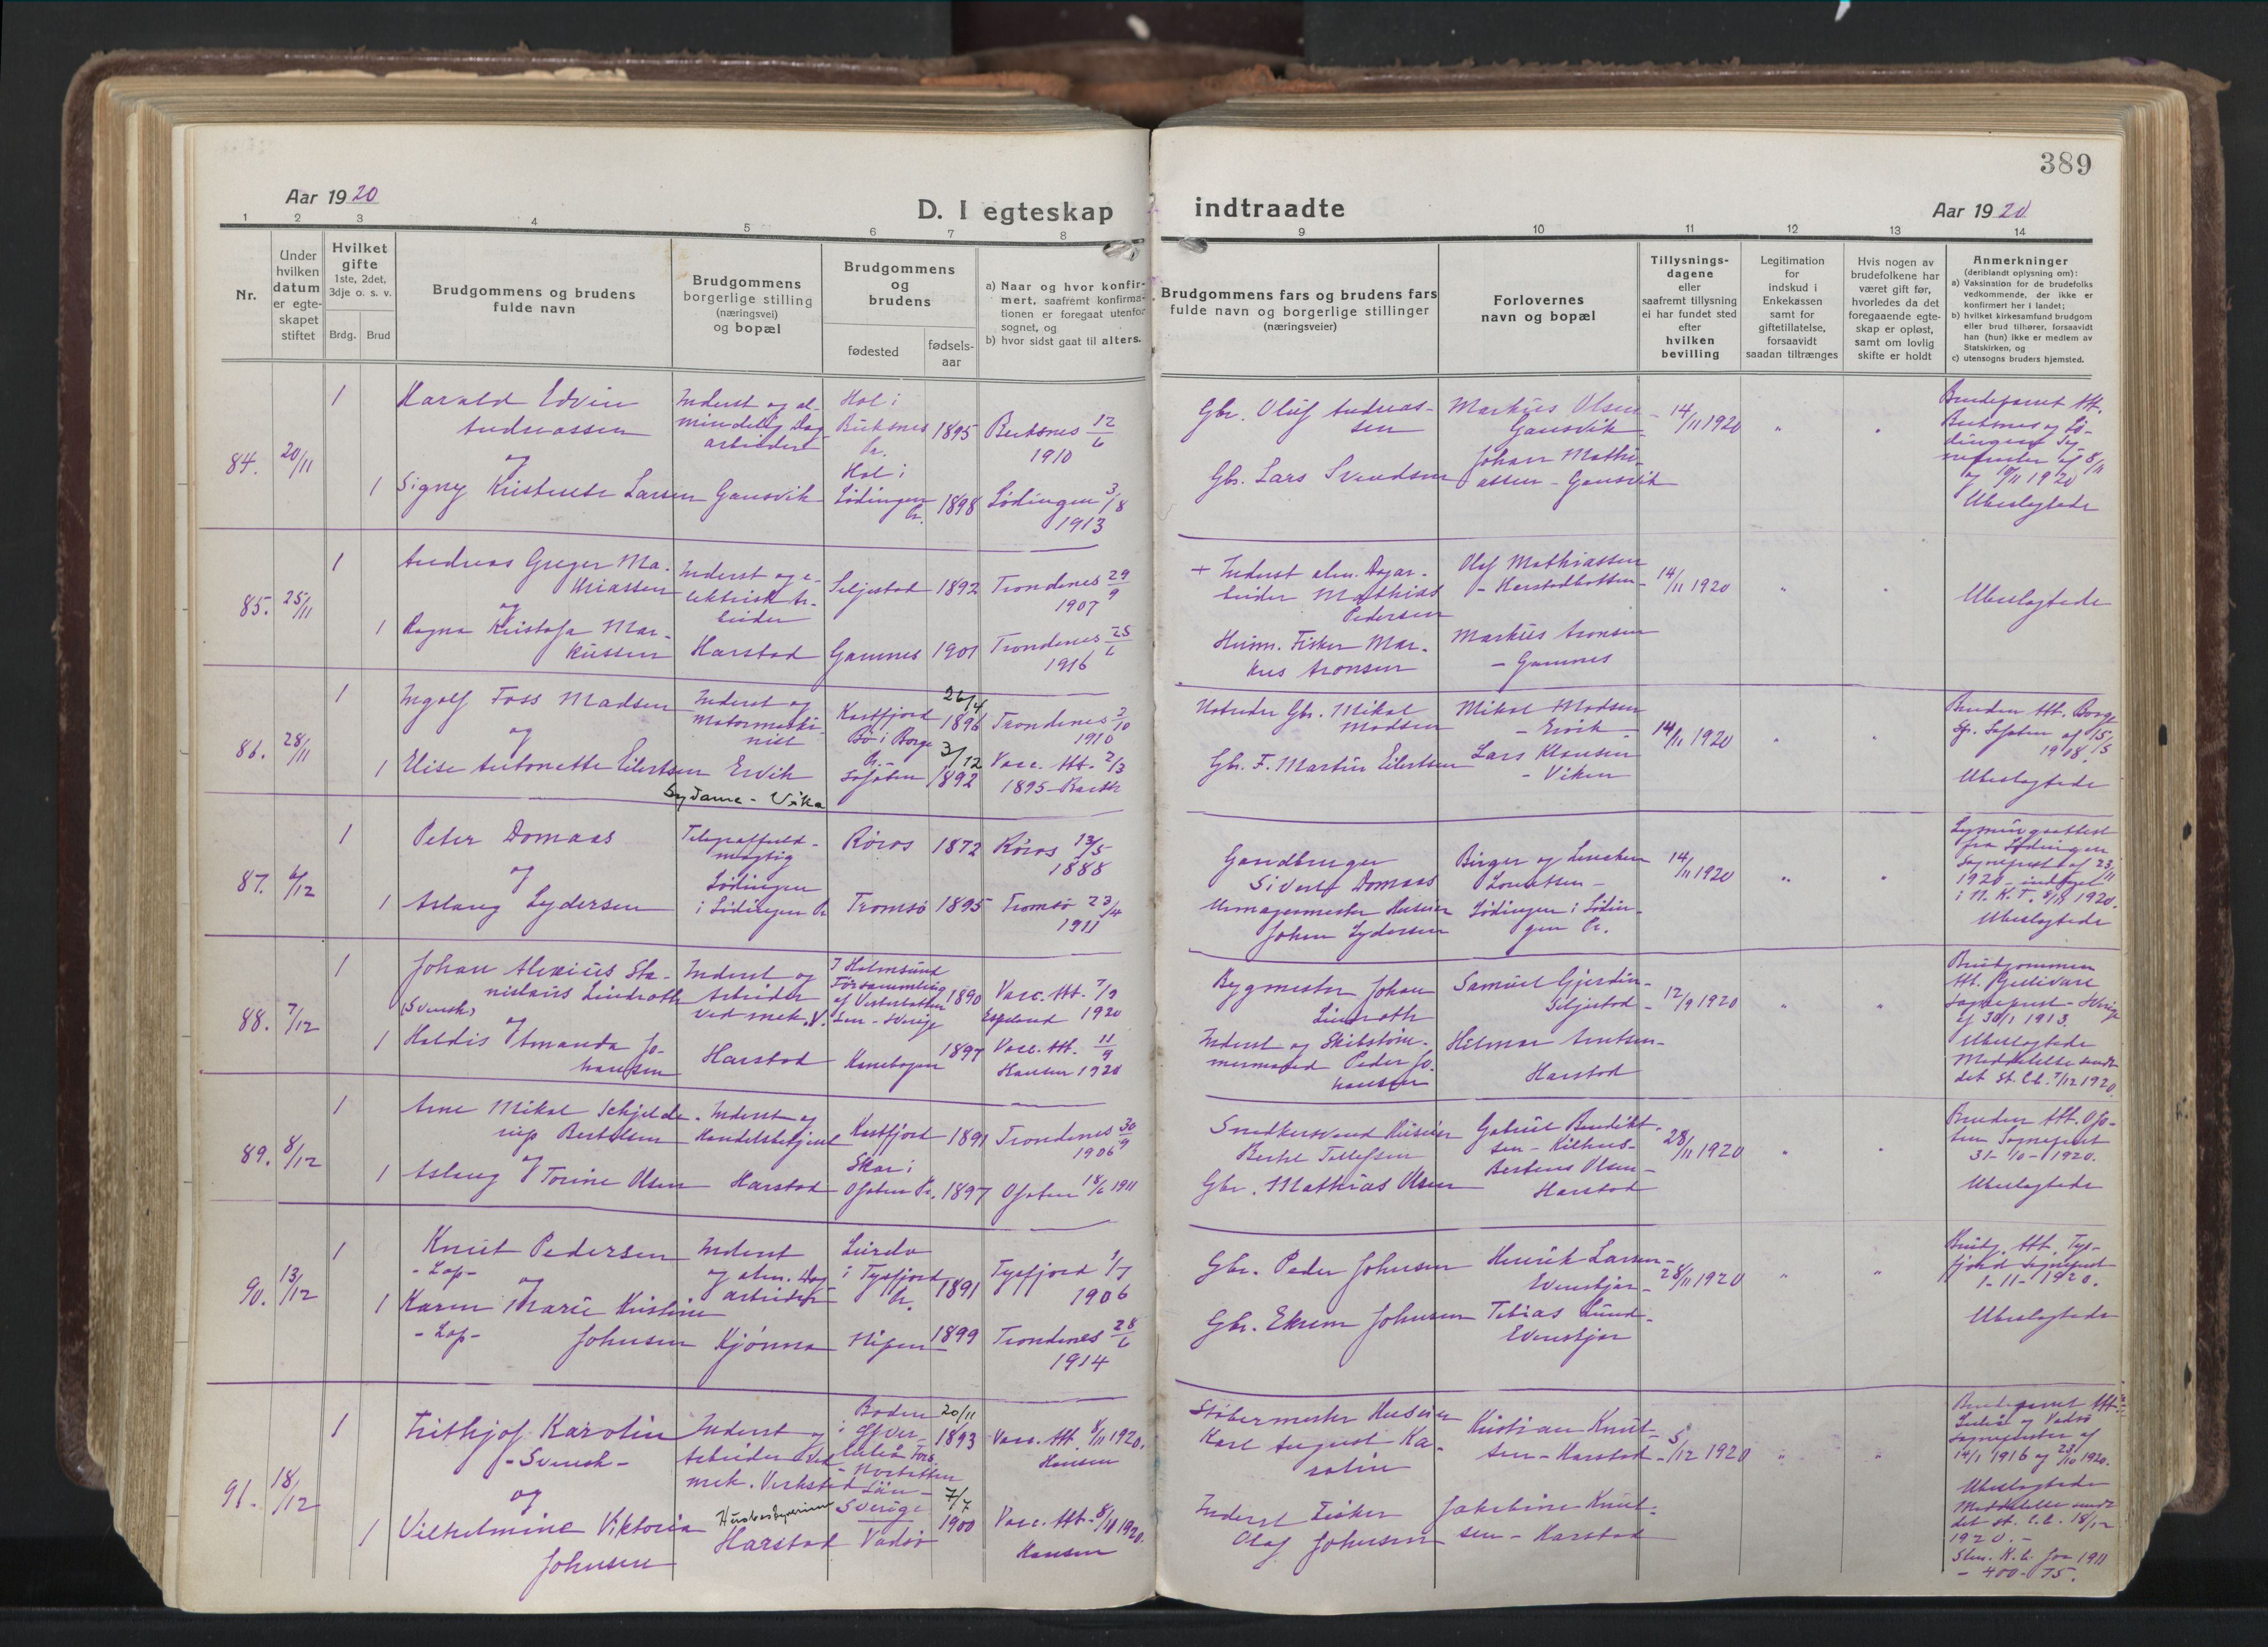 389
Aar 1920
D. I egteskap
indtraadte
Aar 1920
1 2 3 4 5 6 7 8 9 10 11 12 13 14
Nr.
Under
hvilken
datum
er egte-
skapet
stiftet
Hvilket
gifte
1ste, 2det,
3dje o. s. v.
Brdg. Brud
Brudgommens og brudens
fulde navn
Brudgommens
borgerlige stilling
(næringsvei)
og bopæl
Brudgommens
og
brudens
fødested
fødsels-
aar
a) Naar og hvor konfir-
mert, saafremt konfirma-
tionen er foregaat utenfor
sognet, og
b) hvor sidst gaat til alters.
Brudgommens fars og brudens fars
fulde navn og borgerlige stillinger
(næringsveier)
Forlovernes
navn og bopæl
Tillysnings-
dagene
eller
saafremt tillysning
ei har fundet sted
efter
hvilken
bevilling
Legitimation
for
indskud i
Enkekassen
samt for
giftetillatelse,
forsaavidt
saadan tiltrænges
Hvis nogen av
brudefolkene har
været gift før,
hvorledes da det
foregaaende egte-
skap er opløst,
samt om lovlig
skifte er holdt
Anmerkninger
(deriblandt oplysning om):
a) Vaksination for de brudefolks
vedkommende, der ikke er
konfirmert her i landet;
b) hvilket kirkesamfund brudgom
eller brud tilhører, forsaavidt
han (hun) ikke er medlem av
Statskirken, og
c) utensogns bruders hjemsted.
84. 20/11
1 Harald Edvin
Andreassen
og
1 Signy Kristense Larsen
Inderst og al-
mindelig Dag-
arbeider
Gausvik
Hol i
Buksnes
Pr.
1895
Hol i
Lødingen
Pr.
1898
Buksnes 12/6
1910
Lødingen 3/8
1913
Gbr. Oluf Andreas-
sen
Gbr. Lars Svendsen
Markus Olsen -
Gausvik
Johan Mathi-
assen - Gausvik
14/11 1920
Brudeparret Att.
Buksnes og Lø-
dingens Sg
8/11
og 10/11 1920
Ubeslegtede
85. 25/11
1 Andreas Greger Ma-
thiassen
og
1 Ragna Kristofa Mar-
kussen
Inderst og e-
lektrisk Ar-
beider
Harstad
Seljestad 1892
Gamnes 1901
Trondenes 29/9
1907
Trondenes 25/6
1916
+ Inderst alm. Dagar-
beider Mathias
Pedersen
Husm. Fisker Mar-
kus Aronsen
Olaf Mathiassen
- Harstadbotten
Markus Aronsen
- Gamnes
14/11 1920
Ubeslegtede
86. 28/11
1 Ingolf Foss Madsen
og
1 Elise Antonette Eilertsen
Inderst og
Motormaski-
nist
Ervik
Sydame - Vika
Kastfjord
26/4
1896
Bø i Borge
Pr. -
Lofoten
3/12
1892
Trondenes 2/10
1910
Vacc. Att. 2/3
1895 - Barth
Gbr. Mikal
Madsen
Gbr. F. Martin Eilertsen
Mikal Madsen
- Ervik -
Lars Klausen
- Viken
14/11 1920
Bruden Att. Borge
Spr. Lofoten af 15/5
1918.
Ubeslegtede
87. 6/12
1 Peter Domaas
og
1 Aslaug Lydersen
Telegraffuld-
mægtig
Lødingen
i Lødingen Pr
Røros 1872
Tromsø 1895
Røros 13/5
1888
Tromsø 23/4
1911
Gaardbruger
Sivert Domaas
Urmagermester Huseier
Johan Lydersen
Birger og
Lorentzen -
Lødingen i Lødin-
gen Pr.
14/11 1920
Lysningsattest
fra Lødingen
Sogneprest af 23/11
1920 -
i N. K. T. 1920.
Ubeslegtede
88. 7/12
1 Johan Alexius Sta-
nislaus Lindroth
(Svensk)
og
1 Haldis Amanda Jo-
hansen
Inderst og
Arbeider
ved mek. V.
Harstad
I Holmsund
Forsammling
af Vesterbotten
Len - Sverige
1890
Kanebogen 1897
Vacc. Att. 7/9
Espeland 1920
Vacc. Att. 11/9
Hansen 1920
Bygmester Johan
Lindroth
Inderst og Skibstøm-
mermand Peder Jo-
hansen
Samuel Gjerdin -
Seljestad -
Hilmar Arntsen -
Harstad
12/9 1920
Brudgommen
Att. Gellivare
Sogneprest - Sverige
af 30/1 1913.
Ubeslegtede
Meddelelse sendt
det St. C.b. 7/12 1920.
89. 8/12
1 Arne Mikal Schjelde-
rup Bertelsen
og
1 Aslaug Torine Olsen
Inderst og
Handelsbetjent
Harstad
Kastfjord 1891
Skar i
Ofoten Pr. 1897
Trondenes 30/9
1906
Ofoten 18/6 1911
Snedkersvend Huseier
Bertel Tollefsen
Gbr. Mathias Olsen
Gabriel Benedikt-
sen - Kilhus -
Bertens Olsen -
Harstad
28/11 1920
Bruden Att. Ofo-
ten Sogneprest
31-10-1920.
Ubeslegtede
90. 13/12
1 Knut Pedersen
- Lap -
og
1 Karen Marie Kristine
- Lap -
Johnsen
Inderst
og alm. Dag-
arbeider
Kjønna
i Tysfjord
Pr.
1891
1899
Tysfjord 1/7
1906
Trondenes 28/6
1914
Gbr. Peder Johnsen
Gbr. Johnsen
Henrik Larsen -
Evenskjær -
Tobias Lund -
Evenskjær
28/11 1920
Brudg. Att. Tys-
fjord Sogneprest
1-11-1920.
Ubeslegtede
91. 18/12
1 Frithjof Karolin
- Svensk -
og
1 Vilhelmine Viktoria
Johnsen
Inderst og
Arbeider ved
mek. Verksted
Husbestyrerinne
Harstad
Boden
i Øfver-
luleå Fors.
- Norbotten
Län -
Sverige
20/11
1893
Vadsø
7/7
1900
Vacc. Att. 8/11 1920.
Hansen
Vacc. Att. 8/11 1920.
Hansen
Støbermester Huseier
Karl August Ka-
rolin
Inderst Fisker
Olaf Johnsen
Kristian Knut-
sen - Harstad -
Jakobine Knut-
sen - Harstad
5/12 1920
Brudeparret Att.
Luleå og Vadsø
Sogneprester af
14/1 1916 og 23/10 1920.
Ubeslegtede
Meddelelse sendt
det st. C.b. 18/12
1920. -
K.b. for 1911
- 400 - 75.